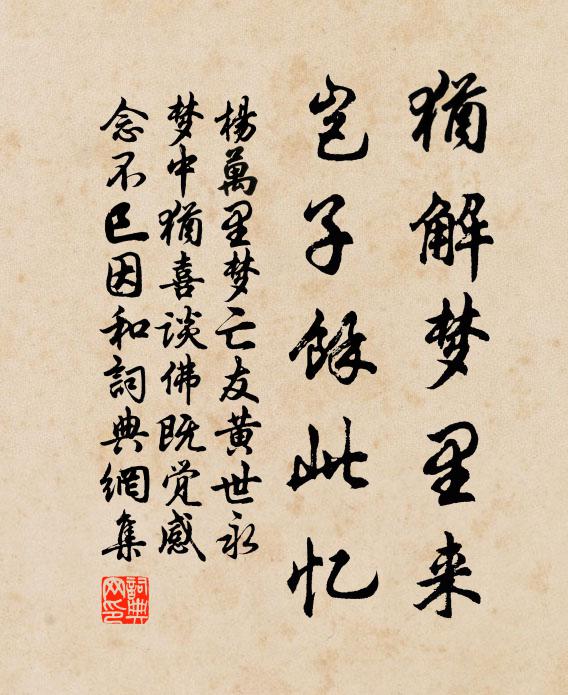 犹解梦里来
岂子餘此忆
楊萬里梦亡友黄世永
梦中犹喜谈佛既觉感
念不已因和詞典網集
詞典
网印